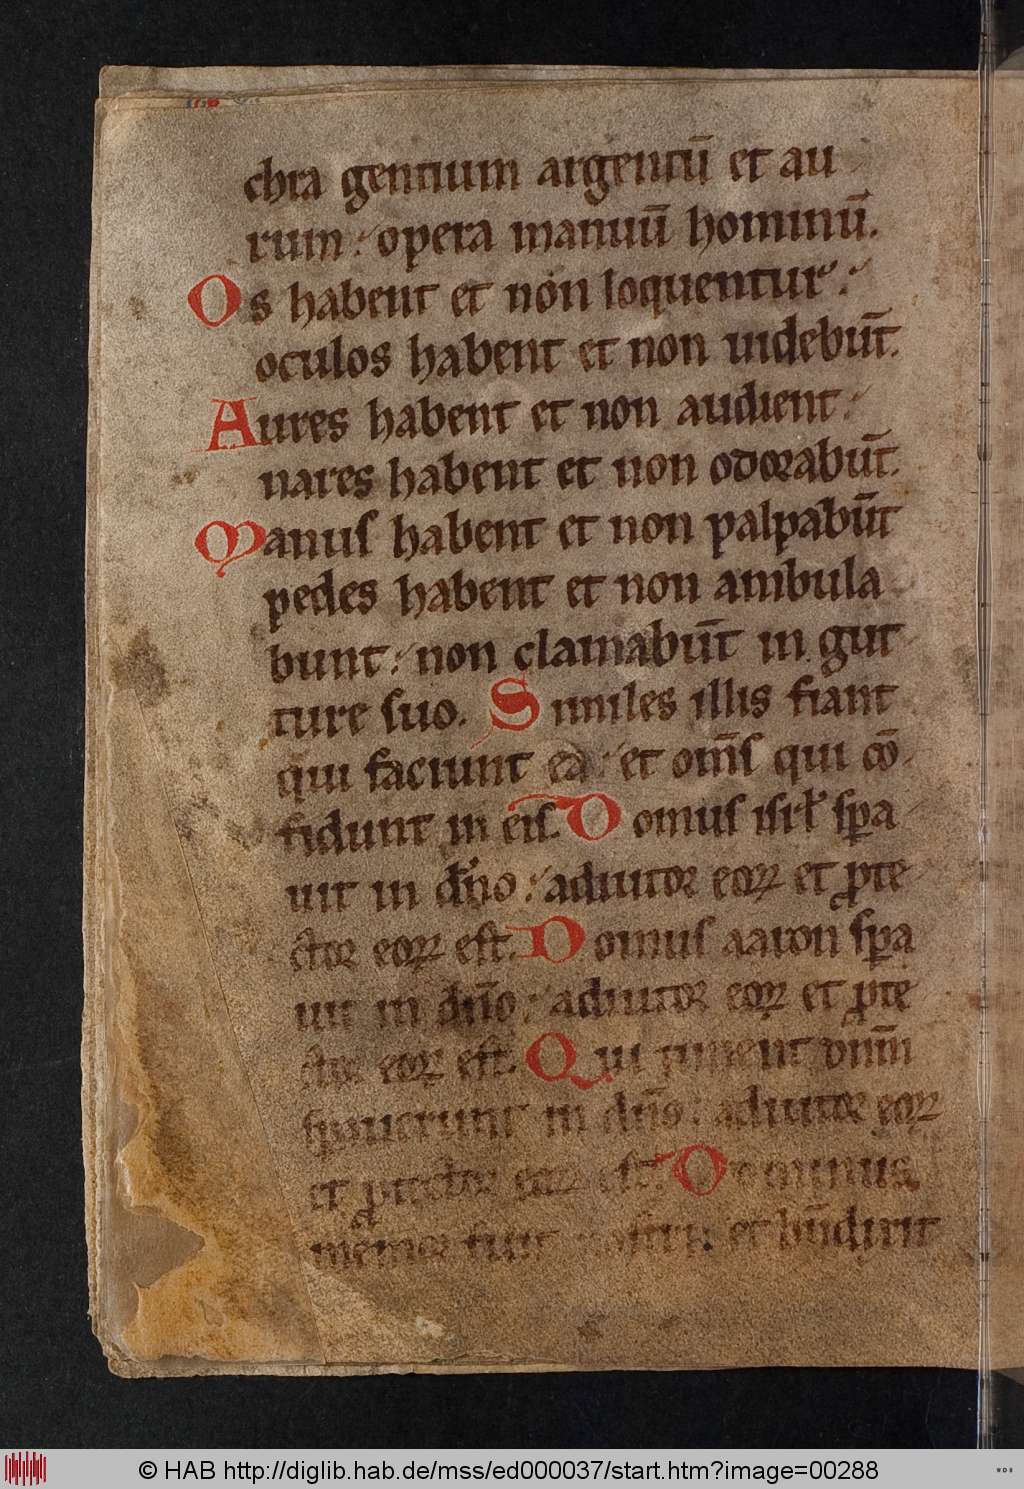 chra gentium argentū et au
rum : opera manuū hominū.
Os habent et non loquentur :
oculos habent et non uidebūt.
Aures habent et non audient :
nares habent et non odorabūt.
Manus habent et non palpabūt
pedes habent et non ambula
bunt : non clamabūt in gut
ture suo. Similes illis fiant
qui faciunt ea : et om̄s qui cō
fidunt in eis. Domus isrl̓ spa
uit in dn̄o : adiutor eoꝝ et ꝓte
ctor eoꝝ est. Domus aaron spa
uit in dn̄o : adiutor eoꝝ et ꝓte
ctor eoꝝ est. Qui timent dn̄m
spauerunt in dn̄o : adiutor eoꝝ
et ꝓtector eoꝝ est. Dominus
memor fuit nostri : et bn̄dixit
© HAB http://diglib.hab.de/mss/ed000037/start.htm?image=00288